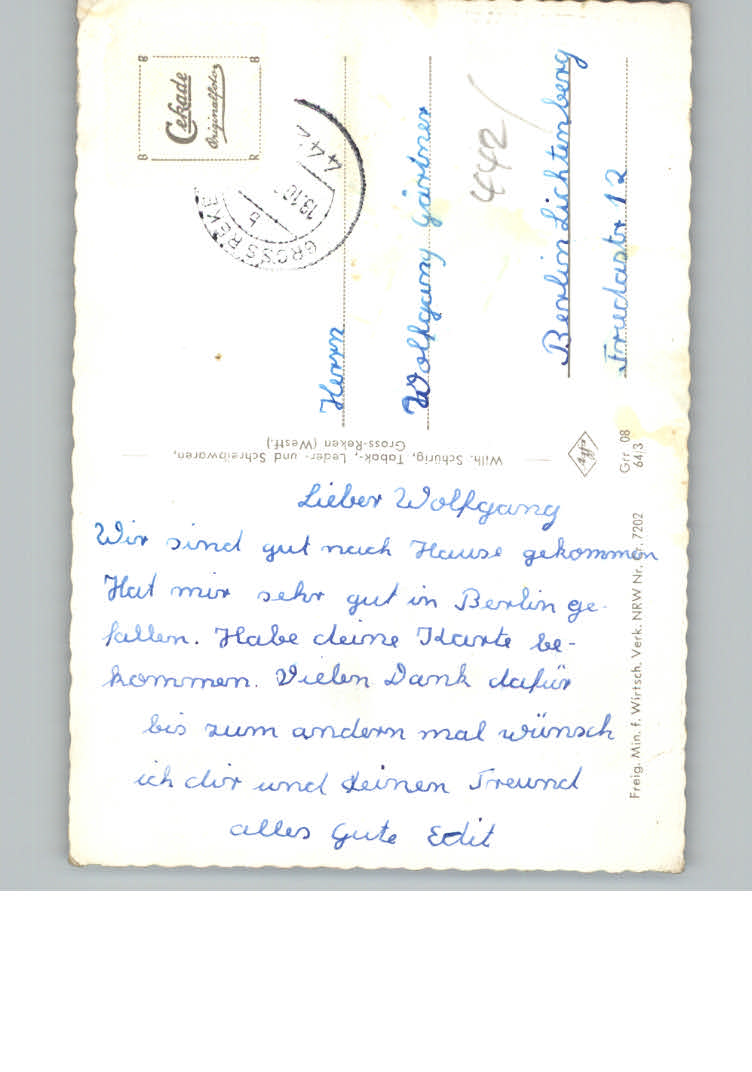 Lieber Wolfgang
Wir sind gut nach Hause gekommen
Hat mir sehr gut in Berlin ge-
fallen. Habe deine Karte be-
kommen. Vielen Dank dafür
bis zum andern mal wünsch
ich dir und deinen Freund
alles Gute Edit
Herrn
Wolfgang Gärtner
Berlin Lichtenberg
Friedastr 12
442
Cekade
Originalfoto
B
B
B
R
GROSS REKE
13.10
b
442
Wilh. Schürig, Tabak-, Leder- und Schreibwaren,
Gross-Reken (Westf.)
Agfa
Grr 08
64/3
Freig. Min. f. Wirtsch. Verk. NRW Nr. 7202